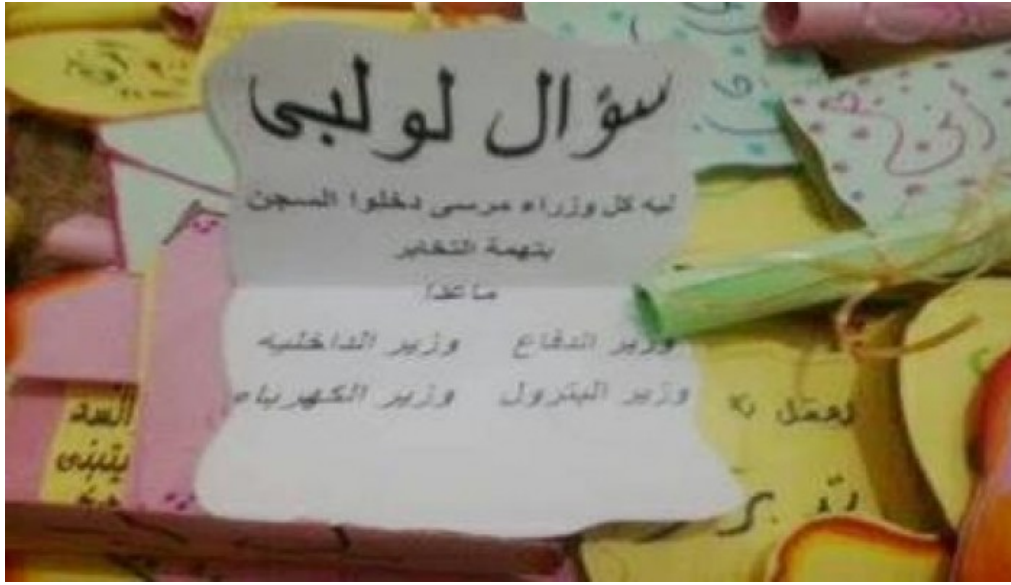 سؤال لولبى
ليه كل وزراء مرسى دخلوا السجن
بتهمة التخابر
ماعدا
وزير الدفاع وزير الداخليه
وزير البترول وزير الكهرباء
السد
يتبنى